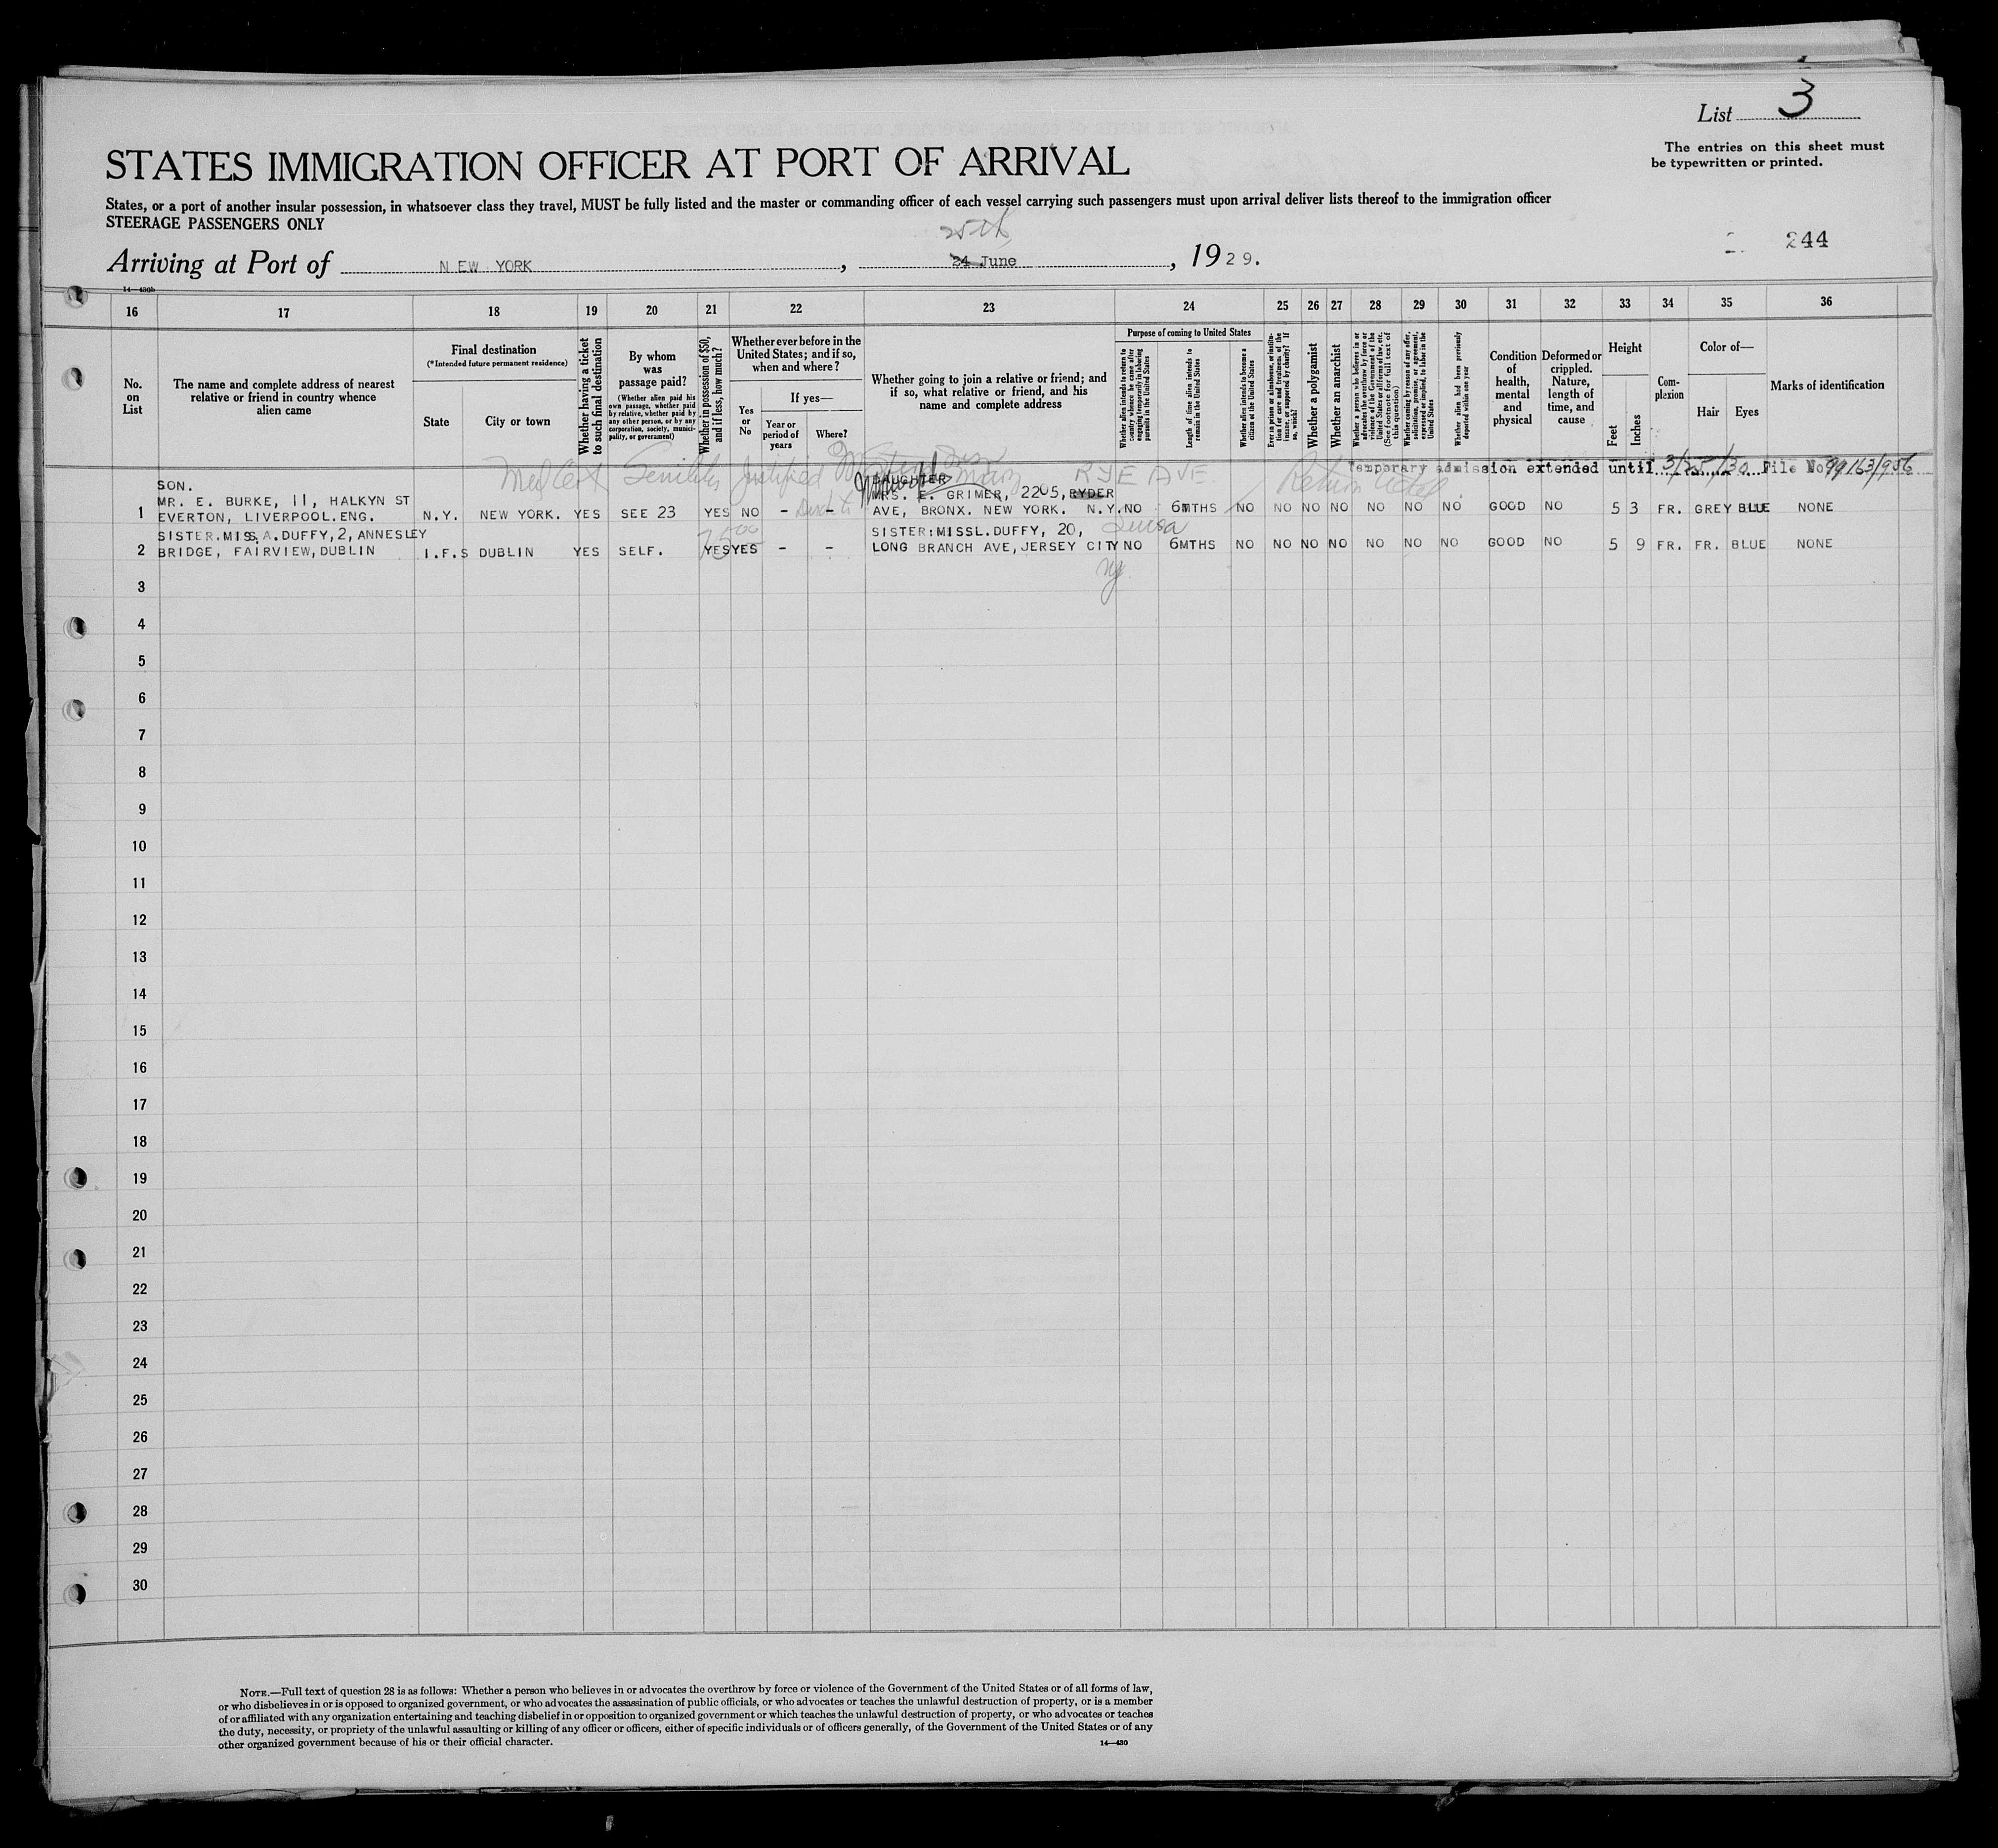 List 3
The entries on this sheet must
be typewritten or printed.
STATES IMMIGRATION OFFICER AT PORT OF ARRIVAL
States, or a port of another insular possession, in whatsoever class they travel, MUST be fully listed and the master or commanding officer of each vessel carrying such passengers must upon arrival deliver lists thereof to the immigration officer
STEERAGE PASSENGERS ONLY
25th
244
Arriving at Port of NEW YORK, 24 June, 1929.
14—430b
16 17 18 19 20 21 22 23 24 25 26 27 28 29 30 31 32 33 34 35 36
No. on List
The name and complete address of nearest
relative or friend in country whence
alien came
Final destination
(*Intended future permanent residence)
State
City or town
Whether having a ticket
to such final destination
By whom
was
passage paid?
(Whether alien paid his
own passage, whether paid
by relative, whether paid by
any other person, or by any
corporation, society, munici-
pality, or government)
Whether in possession of $50,
and if less, how much?
Whether ever before in the
United States; and if so,
when and where?
Yes
or
No
If yes—
Year or
period of
years
Where?
Whether going to join a relative or friend; and
if so, what relative or friend, and his
name and complete address
Purpose of coming to United States
Whether alien intends to return to
country whence he came after
engaging temporarily in laboring
pursuits in the United States
Length of time alien intends to
remain in the United States
Whether alien intends to become a
citizen of the United States
Ever in prison or almshouse, or institu-
tion for care and treatment of the
insane, or supported by charity? If
so, which?
Whether a polygamist
Whether an anarchist
Whether a person who believes in or
advocates the overthrow by force or
violence of the Government of the
United States or all forms of law, etc.
(See footnote for full text of
this question)
Whether coming by reason of any offer,
solicitation, promise, or agreement,
expressed or implied, to labor in the
United States
Whether alien had been previously
deported within one year
Condition
of
health,
mental
and
physical
Deformed or
crippled.
Nature,
length of
time, and
cause
Height
Feet
Inches
Com-
plexion
Color of—
Hair
Eyes
Marks of identification
Med Cert Senility Justified
RYE AVE
Return ticket
Temporary admission extended until 3/25/30 File No 99163/956
SON. DAUGHTER
MR. E. BURKE, 11, HALKYN ST MRS. E. GRIMER, 2205, RYDER
1 EVERTON, LIVERPOOL.ENG. N.Y. NEW YORK. YES SEE 23 YES NO - - AVE, BRONX. NEW YORK. N.Y. NO 6MTHS NO NO NO NO NO NO NO GOOD NO 5 3 FR. GREY BLUE NONE
SISTER.MISS.A.DUFFY,2, ANNESLEY SISTER:MISSL.DUFFY, 20, Luisa
2 BRIDGE, FAIRVIEW,DUBLIN I.F.S DUBLIN YES SELF. YES YES - - LONG BRANCH AVE,JERSEY CITY NO 6MTHS NO NO NO NO NO NO NO GOOD NO 5 9 FR. FR. BLUE NONE
NJ
3
4
5
6
7
8
9
10
11
12
13
14
15
16
17
18
19
20
21
22
23
24
25
26
27
28
29
30
NOTE.—Full text of question 28 is as follows: Whether a person who believes in or advocates the overthrow by force or violence of the Government of the United States or of all forms of law,
or who disbelieves in or is opposed to organized government, or who advocates the assassination of public officials, or who advocates or teaches the unlawful destruction of property, or is a member
of or affiliated with any organization entertaining and teaching disbelief in or opposition to organized government or which teaches the unlawful destruction of property, or who advocates or teaches
the duty, necessity, or propriety of the unlawful assaulting or killing of any officer or officers, either of specific individuals or of officers generally, of the Government of the United States or of any
other organized government because of his or their official character.
14—430